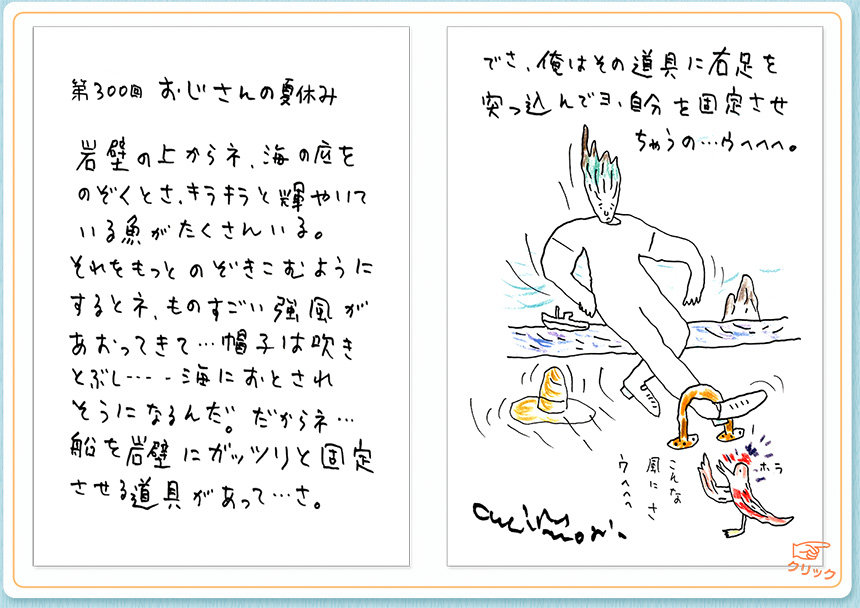 第300回 おじさんの夏休み
岩壁の上からネ、海の底を
のぞくとさ、キラキラと輝やいて
いる魚がたくさんいる。
それをもっとのぞきこむように
するとネ、ものすごい強風が
あおってきて…帽子は吹き
とぶし…‐海におとされ
そうになるんだ。だからネ…
船を岩壁にガッツリと固定
させる道具があって…さ。
でさ、俺はその道具に右足を
突っ込んでヨ、自分を固定させ
ちゃうの…ウヘヘヘ。
ホラ
こんな
風にさ
ウヘヘヘ
クリック